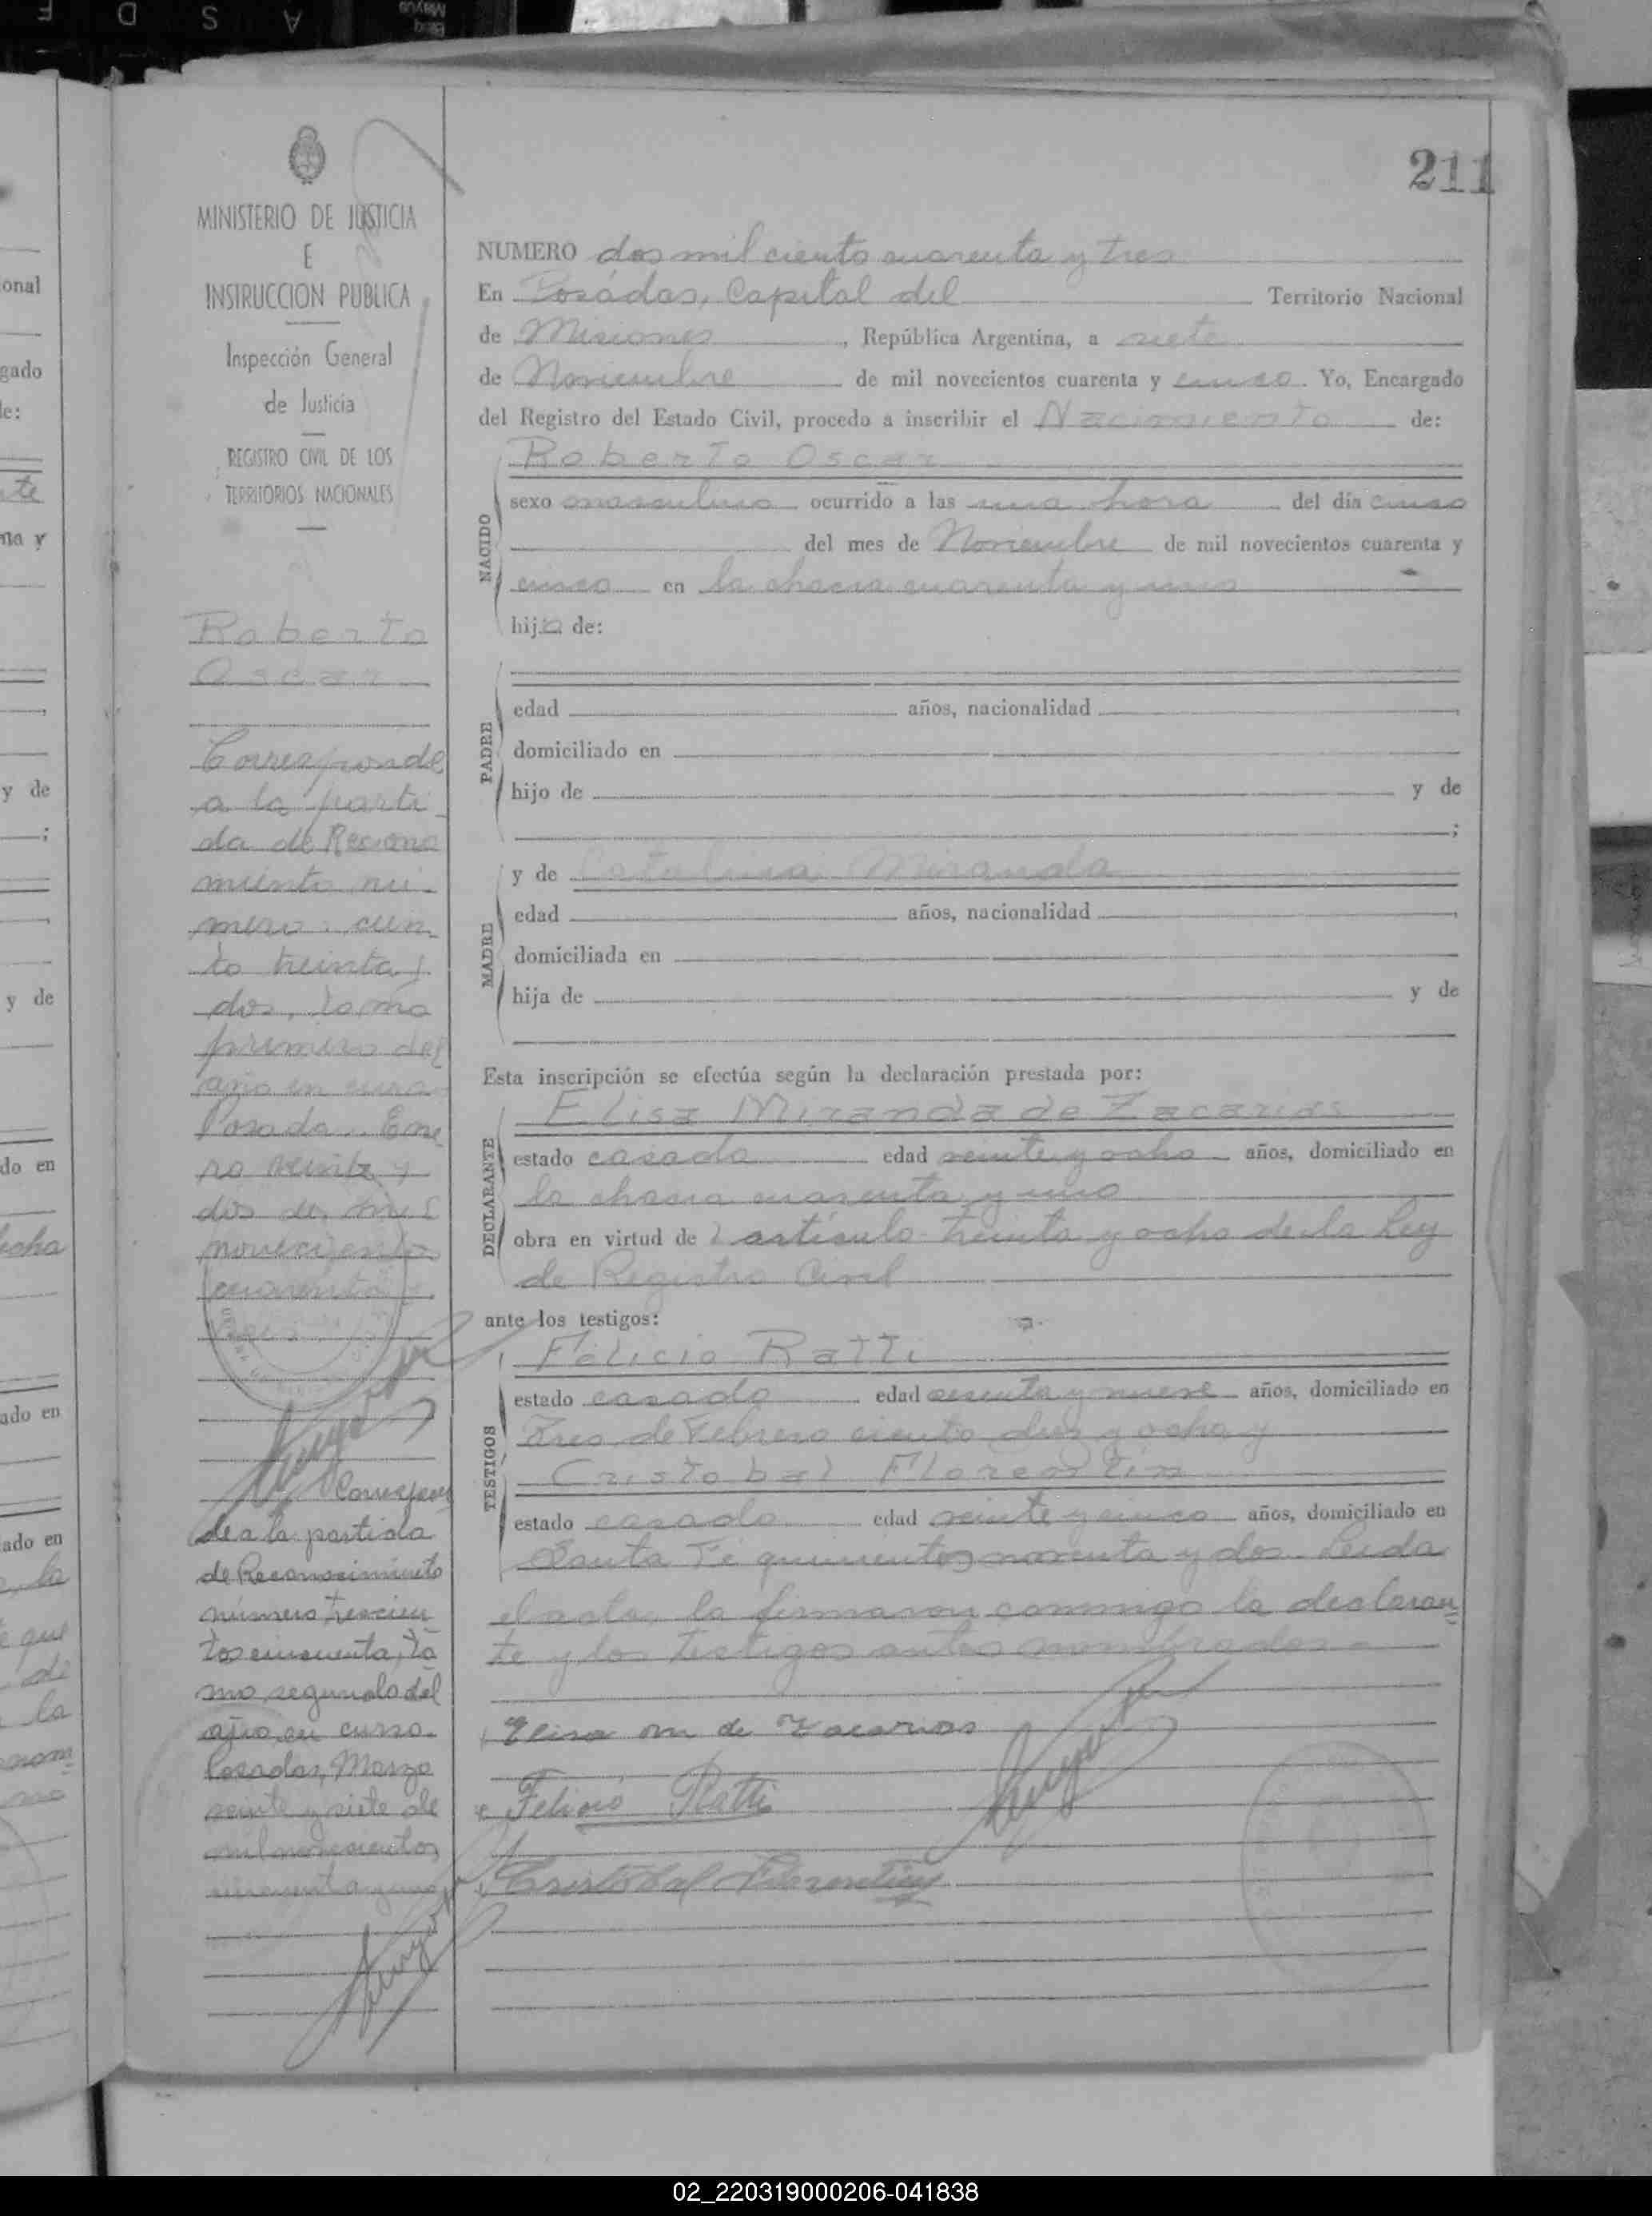 211
MINISTERIO DE JUSTICIA
E
INSTRUCCION PUBLICA
Inspección General
de Justicia
REGISTRO CIVIL DE LOS
TERRITORIOS NACIONALES
Roberto
Oscar
Corresponde
a la parti
da de Recono
miento nú-
mero cien-
to treinta y
dos, tomo
primero del
año en curso
Posadas, Ene
ro veinte y
dos de mil
novecientos
cuarenta
Correspon
de a la partida
de Reconocimiento
número trescien
tos cincuenta, to
mo segundo del
año en curso.
Posadas, Marzo
veinte y siete de
mil novecientos
NUMERO dos mil ciento cuarenta y tres
En Posadas, Capital del Territorio Nacional
de Misiones, República Argentina, a siete
de Noviembre de mil novecientos cuarenta y cinco. Yo, Encargado
del Registro del Estado Civil, procedo a inscribir el Nacimiento de:
Roberto Oscar
NACIDO
sexo masculino ocurrido a las una hora del día cinco
del mes de Noviembre de mil novecientos cuarenta y
cinco en la chacra cuarenta y uno
hijo de:
PADRE
edad años, nacionalidad
domiciliado en
hijo de y de
;
MADRE
y de Catalina Miranda
edad años, nacionalidad
domiciliada en
hija de y de
Esta inscripción se efectúa según la declaración prestada por:
Elisa Miranda de Zacarias
DECLARANTE
estado casada edad veinte y ocho años, domiciliado en
la chacra cuarenta y uno
obra en virtud de l artículo treinta y ocho de la Ley
de Registro Civil
ante los testigos:
Felicio Ratti
TESTIGOS
estado casado edad sesenta y nueve años, domiciliado en
Tres de Febrero ciento diez y ocho y
Cristobal Florentin
estado casado edad veinte y cinco años, domiciliado en
Santa Fé quinientos noventa y dos. Leida
el acta, la firmaron conmigo la declaran
te y los testigos antes nombrados.-
Elisa m de Zacarias
Felicio Ratti
Cristobal Florentin
02_220319000206-041838